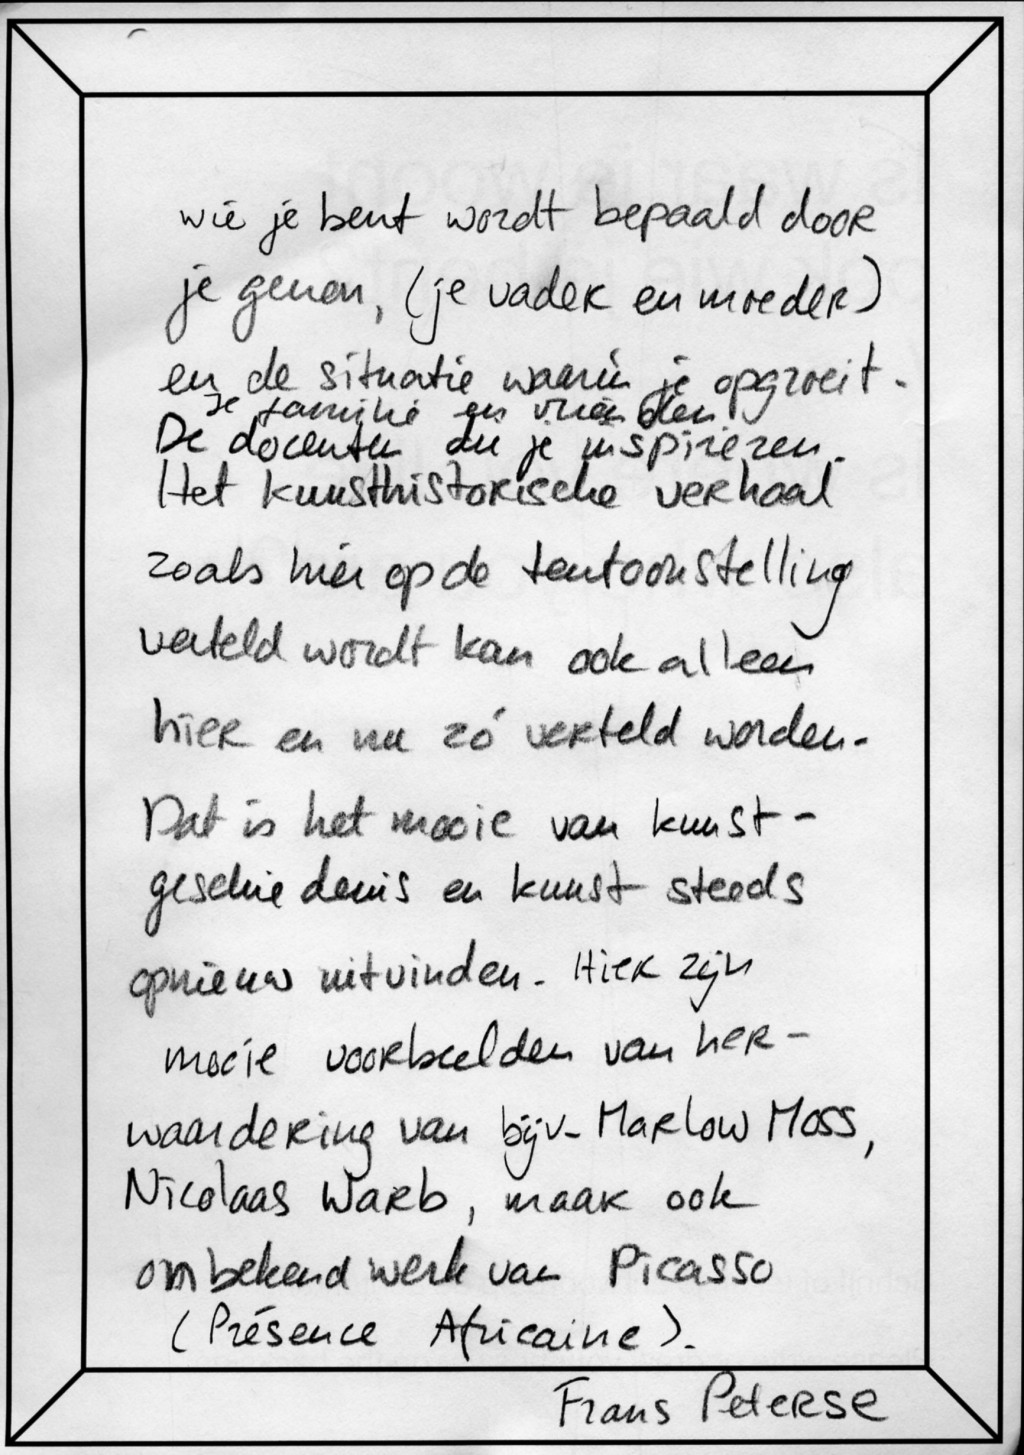 wie je bent wordt bepaald door
je genen, (je vader en moeder)
en de situatie waarin je opgroeit.
Je familie en vrienden
De docenten die je inspireren.
Het kunsthistorische verhaal
zoals hier op de tentoonstelling
verteld wordt kan ook alleen
hier en nu zó verteld worden.
Dat is het mooie van kunst-
geschiedenis en kunst steeds
opnieuw uitvinden. Hier zijn
mooie voorbeelden van her-
waardering van bijv. Marlow Moss,
Nicolaas Warb, maar ook
onbekend werk van Picasso
(Présence Africaine).
Frans Peterse